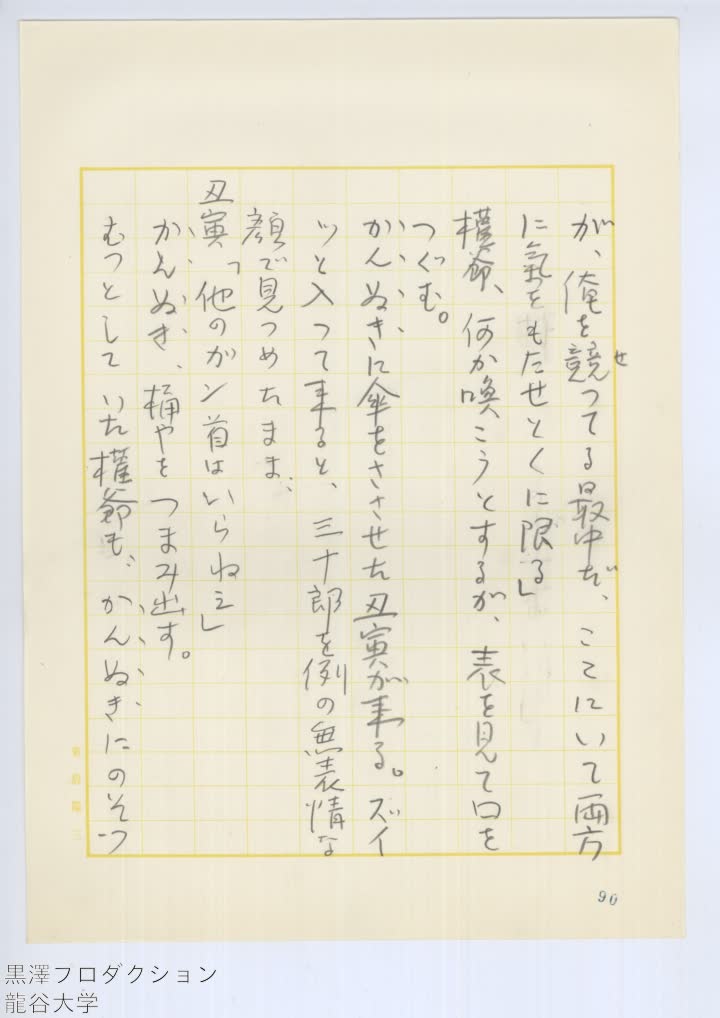 が、俺を競つてる最中だ、ここにいて両方
せ
に氣をもたせとくに限る」
權爺、何か喚こうとするが、表を見て口を
つぐむ。
かんぬきに傘をささせた丑寅が来る。ズイ
ッと入つて来ると、三十郎を例の無表情な
顔で見つめたまま、
丑寅「他のガン首はいらねえ」
かんぬき、桶やをつまみ出す。
むつとしていた權爺も、かんぬきにのそつ
90
黒澤プロダクション
龍谷大学